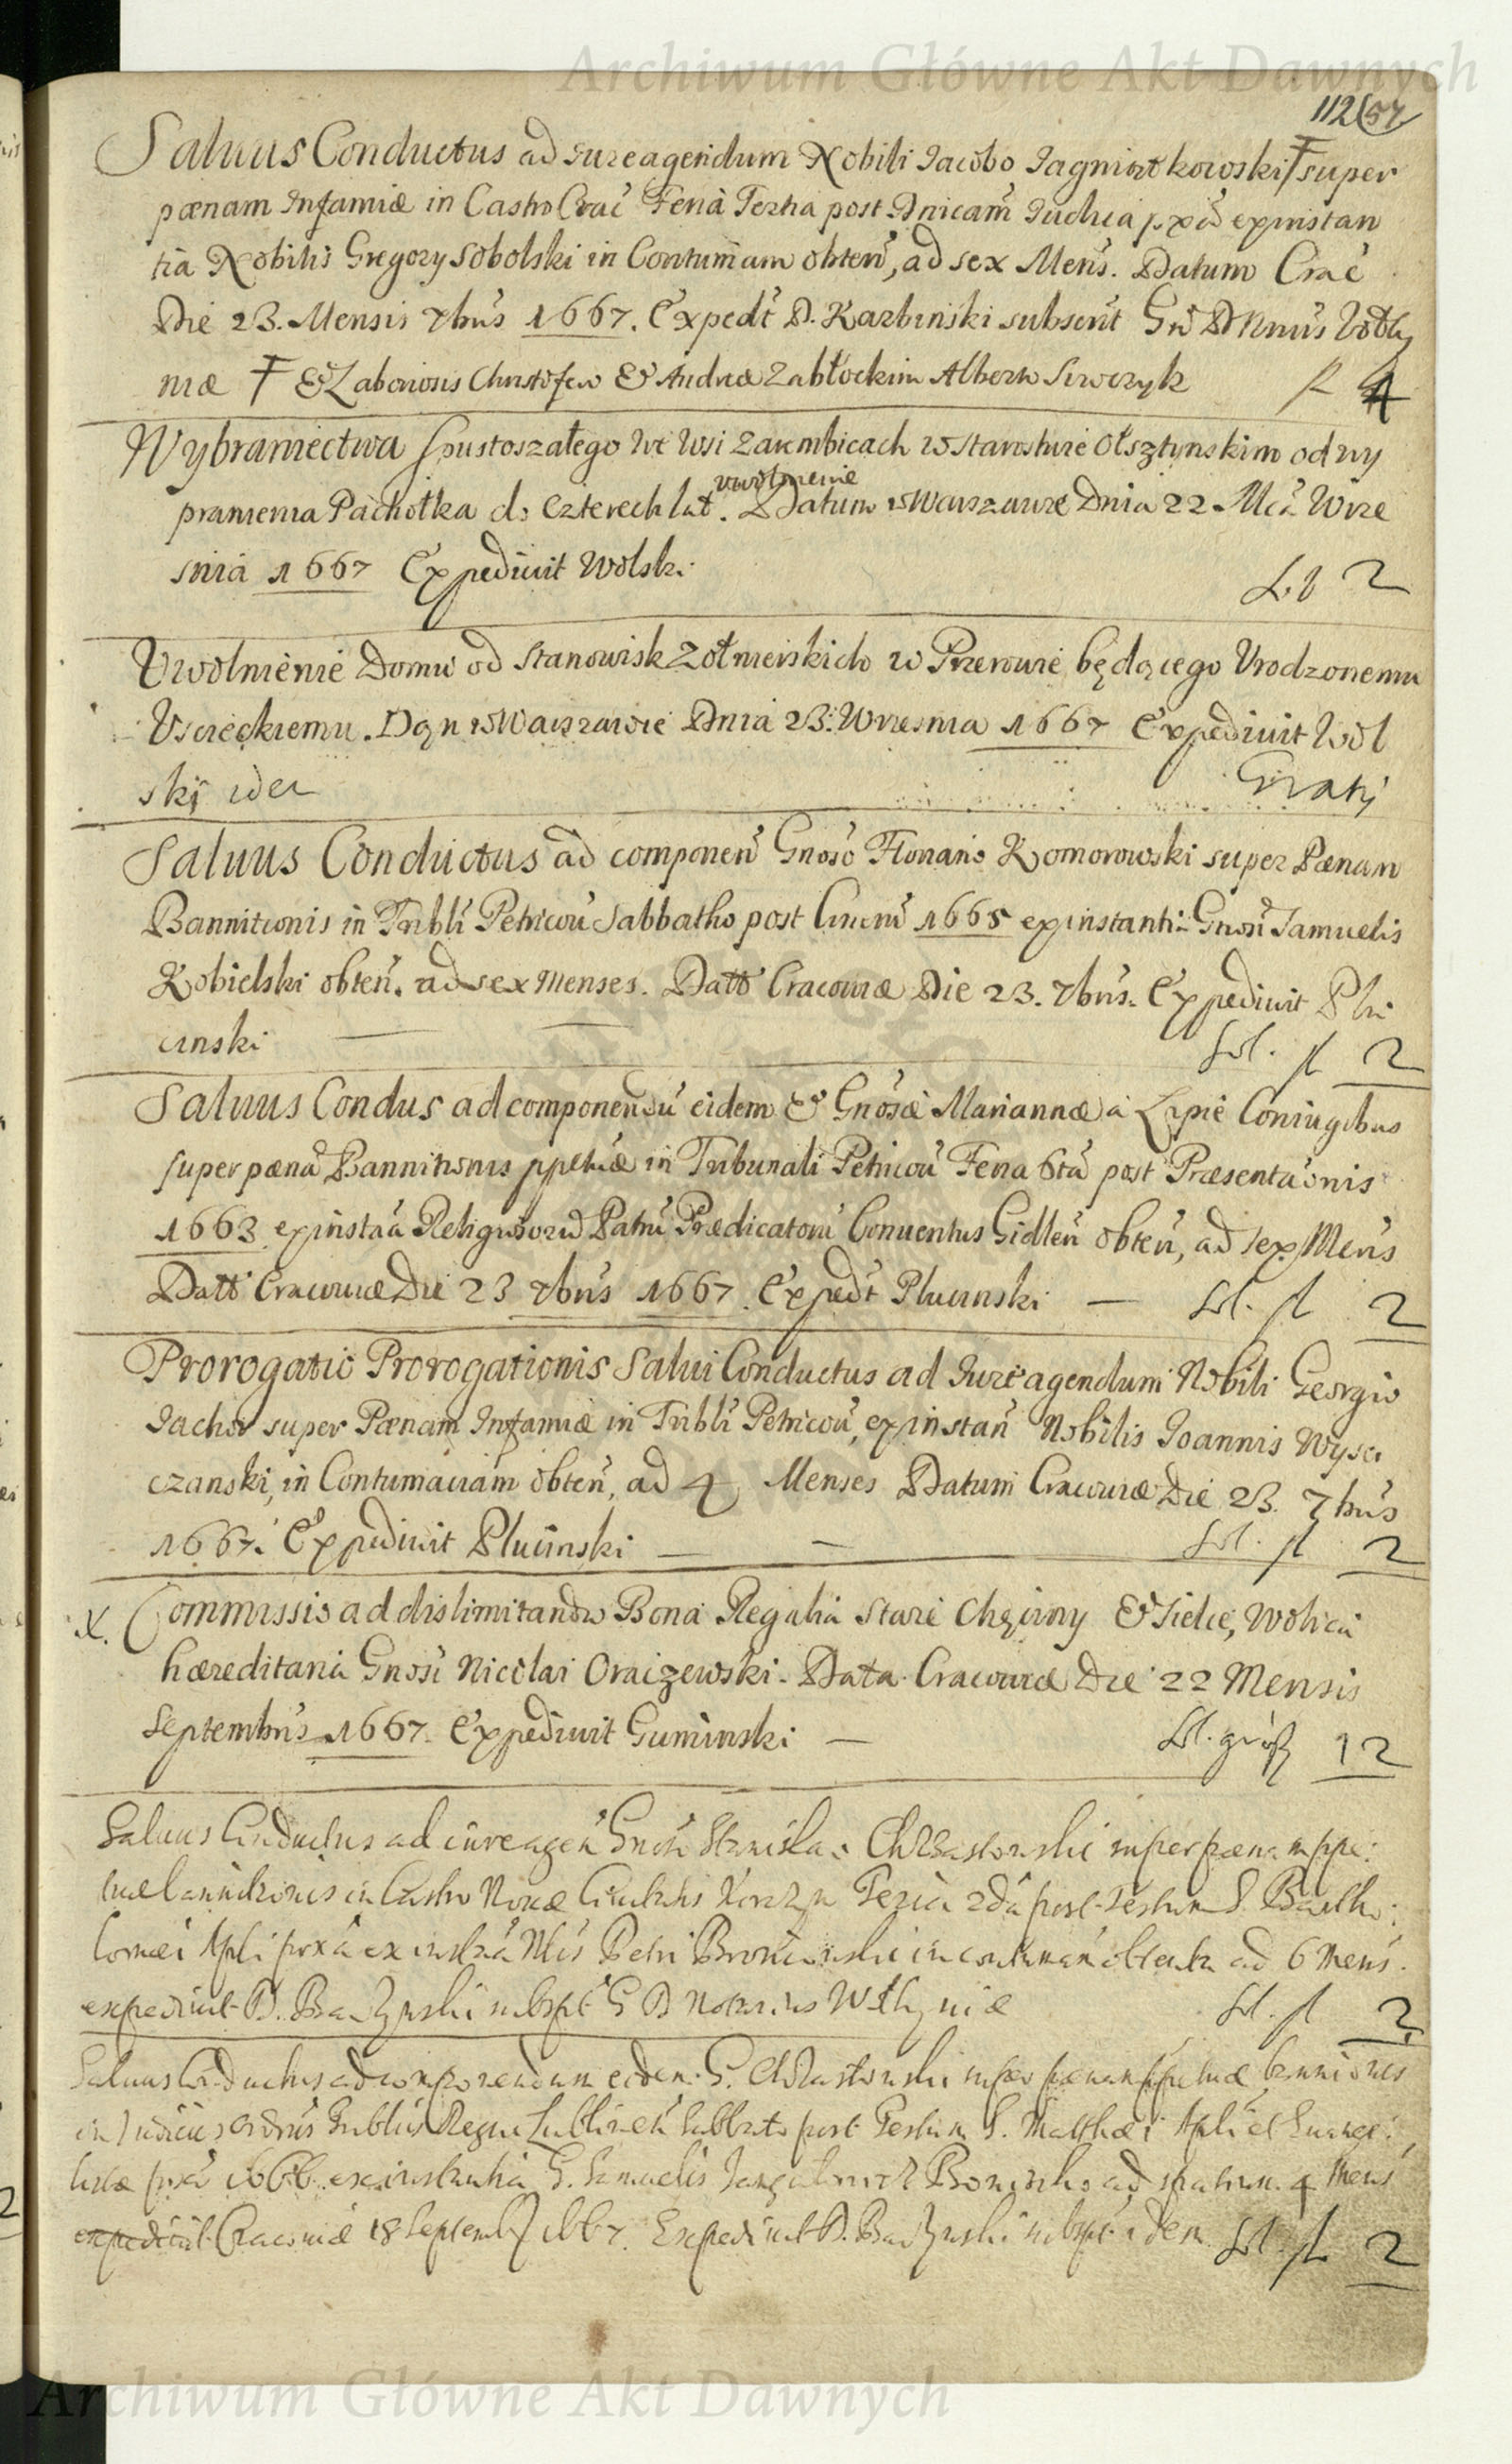 Archiwum Główne Akt Dawnych
112 57
Saluus Conductus ad Iure agendum Nobili Iacobo Iagniatkowski Ŧ super
pænam Infamiæ in Castro Crac̃ Feria Tertia post Dnicam̃ Iudica pxĩs ex instan
tia Nobilis Gregory Sobolski in Contumam obteñ, ad sex Meñs. Datum Crac̃
Die 23. Mensis 7brĩs 1667. Expedt̃ D. Karbinski subscrit Gñ D Nrius Wołhy
niæ Ŧ & Laboriosis Christofero & Andreæ Zabłockim Alberto Siwczyk
Wybraniectwa spustoszałego we Wsi Zarembicach w Starostwie Olsztynskim od wy
uwolnienie
prawienia Pachołka do czterech lat. Datum w Warszawie Dnia 22. Mcã Wrze
snia 1667 Expediuit Wolski
2
Uwolnienie Domu od Stanowisk Zołnierskich w Przerowie będącego Urodzonemu
Uscieckiemu. Dan w Warszawie Dnia 23. Wrzesnia 1667 Expediuit Wol
ski
Gratis
Saluus Conductus ad componeñ Gnoso Floriano Komorowski super Pænam
Bannitionis in Tribli Petricoũ Sabbatho post 1665 ex instanti Gnosi Samuelis
Kobielski obteñ. ad sex menses. Datt Cracouiæ Die 23. 7brĩs. Expediuit Plu
cinski
Sol. fl 2
Saluus Condus ad componendũ eidem & Gnosæ Mariannæ a Lipie Coniugibus
super pæna Bannitionis ppetuæ in Tribunali Petricoũ Feria 6ta post Præsentaõnis
1663 ex instãa Religiosorũ Patrũ Prædicatorũ Conuentus Gidleñ obteñ, ad sex Meñs
Datt Cracouiæ Die 23 7brĩs 1667. Expedt̃ Plucinski — Sol. fl 2
Prorogatio Prorogationis Salui Conductus ad Iure agendum Nobili Georgio
Iachor super Pænam Infamiæ in Tribli Petricoũ, ex instañ Nobilis Ioannis Wyso
czanski, in Contumaciam obteñ, ad 4 Menses Datum Cracouiæ Die 23. 7brĩs
1667. Expediuit Plucinski — — Sol. fl 2
X. Commissio ad dislimitando Bona Regalia Stare Chęciny & Sielce, Wolica
hæreditaria Gnosi Nicolai Oraczewski. Data Cracouiæ Die 22 Mensis
Septembrĩs 1667. Expediuit Guminski — Sol. 12
Saluus Conductus ad iure ageñ Gnoso Stanislao Chrzastowski super pænam ppe:
tuæ bannitionis in Castro Nouæ Ciuitatis Korczyn Feria 2da post Festum S. Bartho:
lomæi Apli pxã ex instãa Nlis Petri in contumañ obtenta ad 6 Meñs.
expediuit D. subspt G D Notarius Wołhyniæ Sol. fl 2
Saluus Conductus ad componendum eidem G. Chrzastowski super pænam ppetuæ banniõnis
in Iudiciis Ordrĩs Tribliũs Regni Lublineñ Sabbato post Festum S. Matthæi Apli et Euange:
listæ pxã 1666 ex instantia G. Samuelis ad spatium 4 Meñs
Cracouiæ 18 Septemb 1667. Expediuit D. subspt idem Sol. fl. 2
Archiwum Główne Akt Dawnych